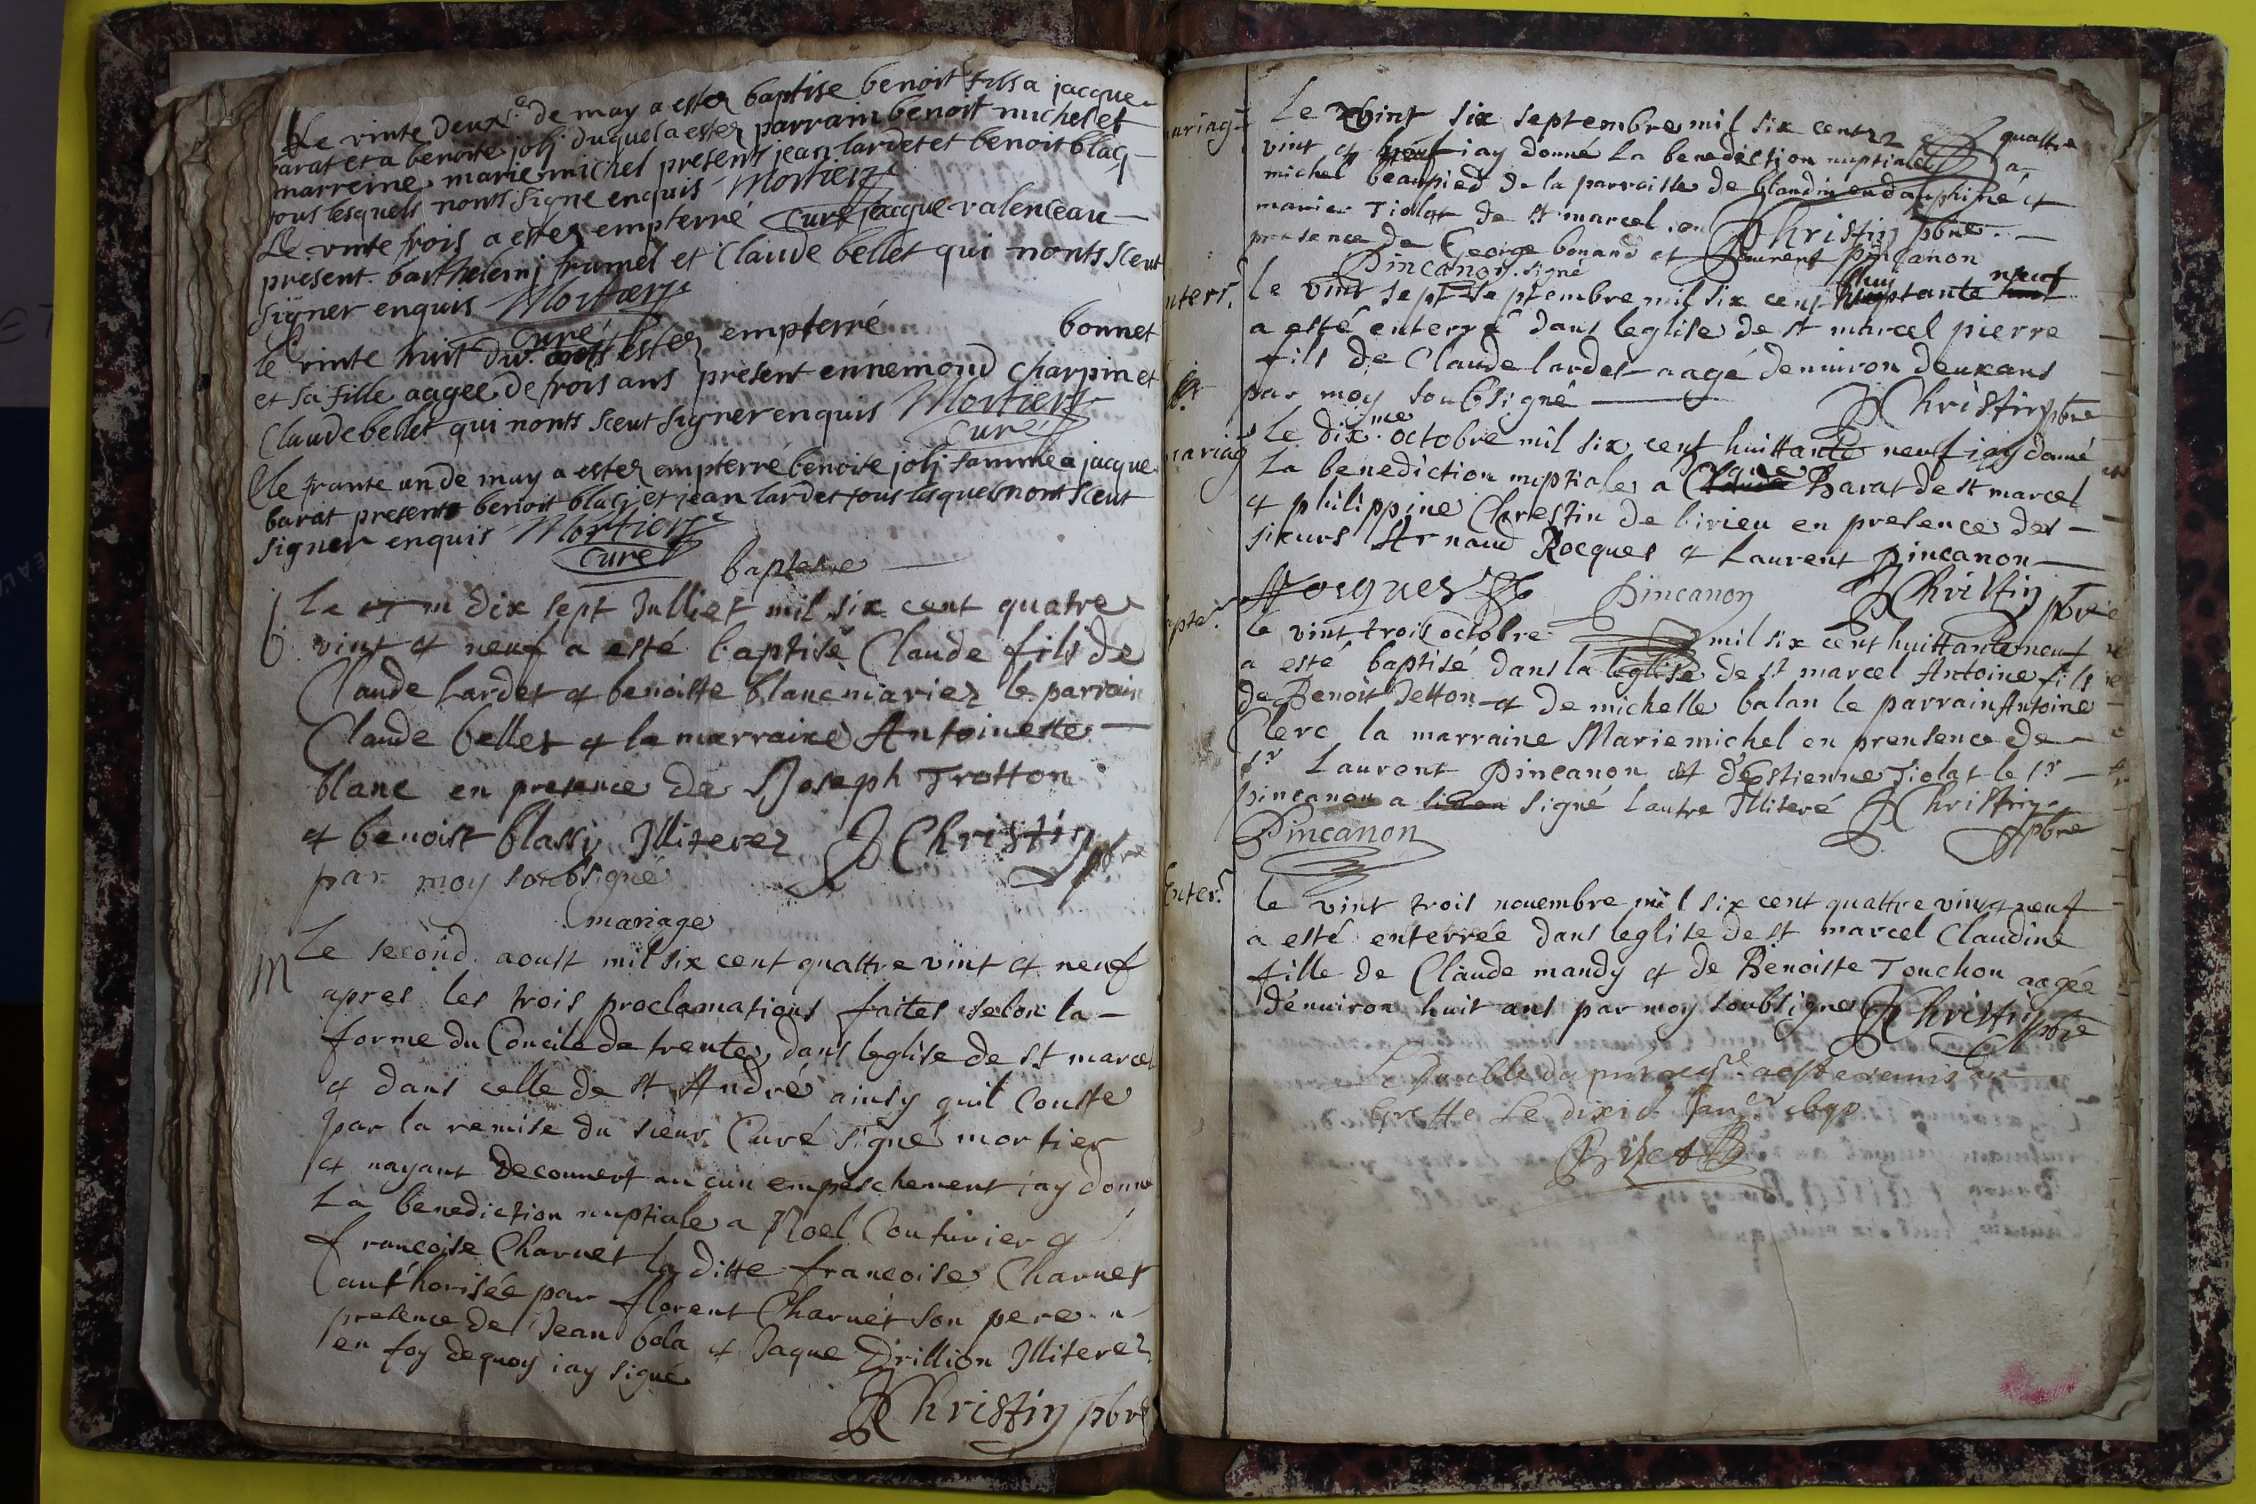 Le vinte deux.e de may a estez baptise benoit fils a jacque
barat et a benoite jolj duquel a estez parrain benoit michel et
marreine marie michel present jean lardet et benoit blacj
tous lesquels nonts signe enquis Mortier
curé
Le vinte trois a estez empterré jacque valenceau
present barthelemj frumel et Claude bellet qui nonts sceut
signer enquis Mortier
curé
le vinte huit du estez empterré bonnet
et sa fille aagee de trois ans present ennemond charpin et
Claude bellet qui nonts sceut signer enquis Mortier
curé
le trante un de may a estez empterré benoite jolj famme a jacque
barat presents benoit blacj et jean lardet tous lesquels nont sceut
signer enquis Mortier
curé
baptesme
b Le dix sept Julliet mil six cent quatre
vint et neuf a esté baptisé Claude fils de
Claude Lardet et benoiste blanc mariez le parrain
Claude bellet et la marraine Antoinette
blanc en presence de Joseph Trotton
et benoist blassy Illiterez J Christin pbre
par moy soubsigné
mariage
M Le second aoust mil six cent quattre vint et neuf
apres les trois proclamations faites selon la
forme du Concile de trente, dans leglise de st marcel
et dans celle de st André ainsy quil conste
par la remise du sieur Curé signé mortier
et nayant decouvert aucun empeschement jay donné
La benediction nuptiale a Noel Couturier et
francoise Charvet la ditte francoise Charvet
authorisée par florent Charvet son pere en
presence de Jean bola et Jaque Drillion Illiterez
en foy dequoy iay signé
J Christin pbre
mariag
Le vint six septembre mil six centz quattre
vint et neuf iay donné La benediction nuptiale a
michel beaupied de la parroisse de blandin en dauphiné et
marie Tiolat de st marcel en J Christin pbre
presence de George bonand et Laurent pincanon
Pincanon signé
enterr.
le vint sept septembre mil six cent huiptante neuf
a esté enterré dans leglise de st marcel pierre
fils de Claude lardet aagé denviron deux ans
par moy soubsigné J Christin pbre
mariag
le dix.me octobre mil six cent huittante neuf iay donné
La benediction nuptiale a Jaque Barat de st marcel
et philippine Chrestin de birieu en presence des
sieurs Arnaud Rocques et Laurent Pincanon
Rocques Pincanon J Christin pbre
bapte.
le vint trois octobre mil six cent huittante neuf
a esté baptisé dans la leglise de st marcel Antoine fils
de Benoit Jetton et de michelle balan le parrain Antoine
Clerc la marraine Marie michel en prensence de
sr Laurent Pincanon et d'Estienne Tiolat le sr
pincanon a signé lautre Illiteré J Christin
pbre
Pincanon
Enter.
le vint trois novembre mil six cent quattre vint neuf
a esté enterrée dans leglise de st marcel Claudine
fille de Claude mandy et de Benoiste Touchon aagée
denviron huit ans par moy soubsigné J Christin
pbre
Le Double du pnt regre a esté remis au
Greffe Le dixie